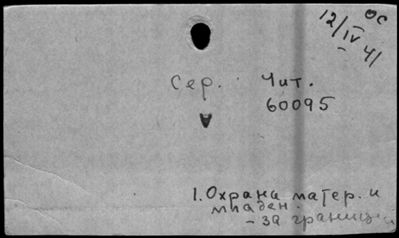 ОС
12/IV 41
Сер. Чит.
60095
1. Охрана матер. и
младен.
- за границей